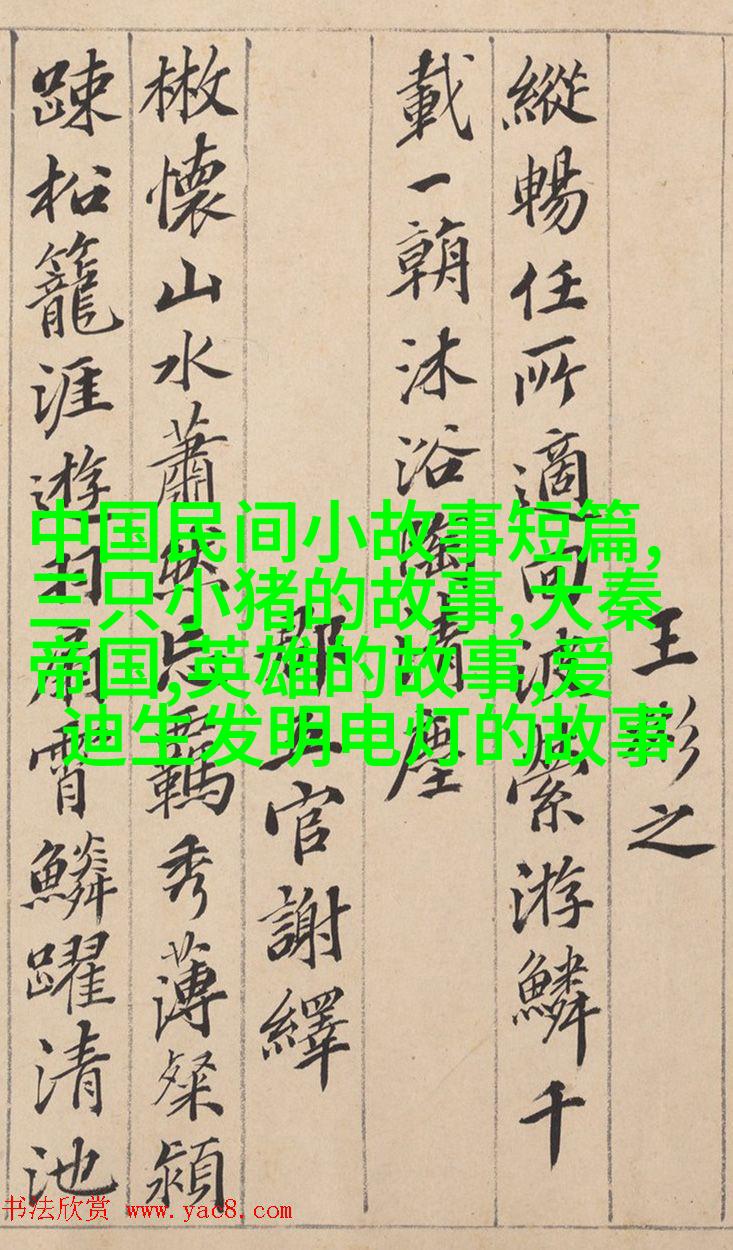 王之
縱暢任所適回波縈游鱗千
載一朝沐浴陶清塵
郡五官謝繹
散懷山水蕭然忘羈秀薄粲穎
踈松籠涯遊羽扇霄鱗躍清池
中国民间小故事短篇,
三只小猪的故事,大秦
帝国,英雄的故事,爱
迪生发明电灯的故事
书法欣赏 www.yac8.com